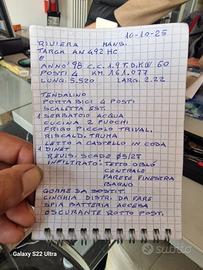 10-10-25
RIVIERA MANS.
TARGA AN 492 HC
E
ANNO '98 C.C. 1.9 T.D. KW 60
POSTI 4 KM 161.077
LUNG. 5.520 LARG. 2.22
TENDALINO
PORTA BICI 4 POSTI
SCALETTA EST.
1 SERBATOIO ACQUA
CUCINA 2 FUOCHI
FRIGO PICCOLO TRIVAL.
RISCALD. TRUMA
LETTO A CASTELLO IN CODA
1 DINET
REVIS. SCADE 05/27
INFILTRATO: TETTO OBLÒ
CENTRALE
PARETE FINESTRA
BAGNO
GOMME DA SOSTIT.
CINGHIA DISTRI. DA FARE
SPIA BATTERIA ACCESA
OSCURANTE ROTTO POST.
Galaxy S22 Ultra
subito